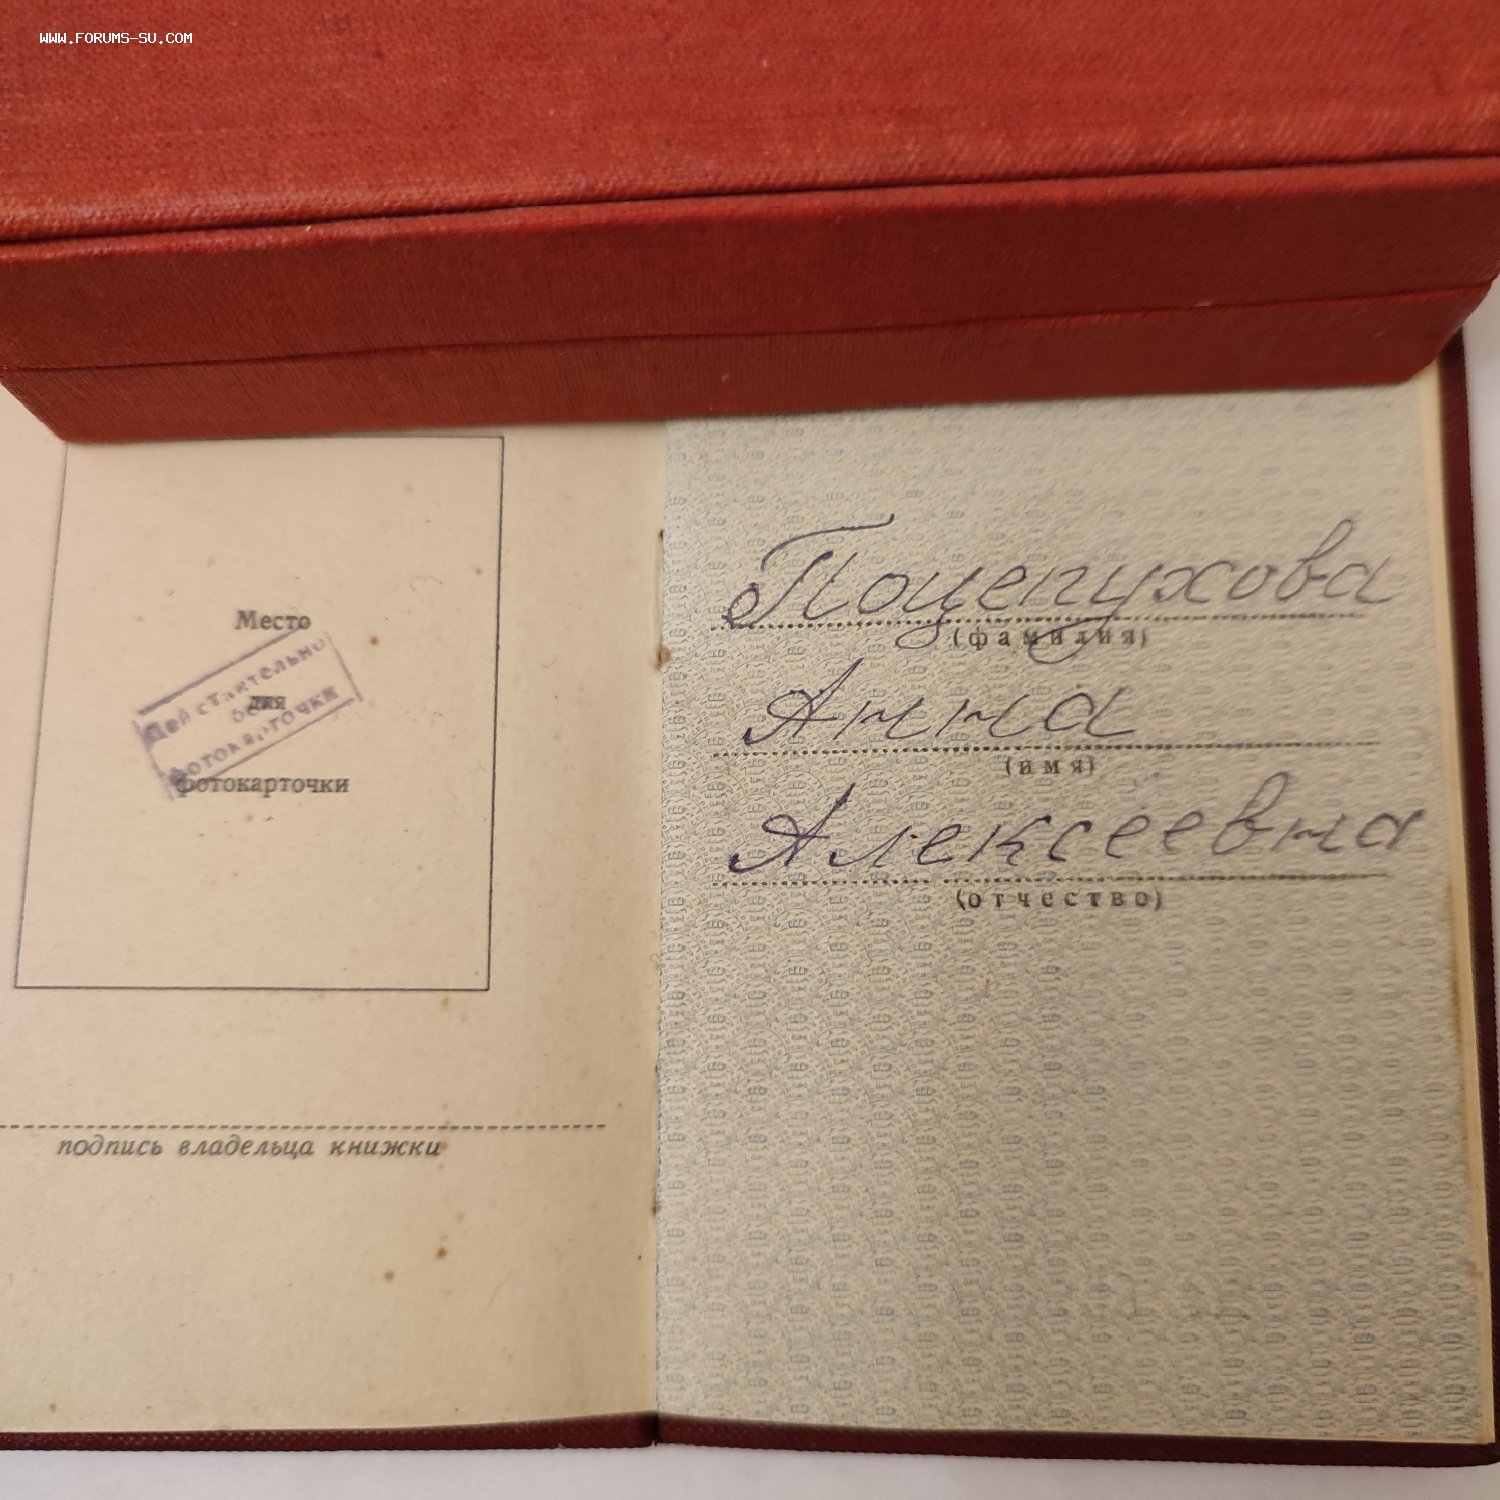 WWW.FORUMS-SU.COM
Место
для
фотокарточки
Действительно
без
фотокарточки
подпись владельца книжки
Поцепухова
(фамилия)
Анна
(имя)
Алексеевна
(отчество)